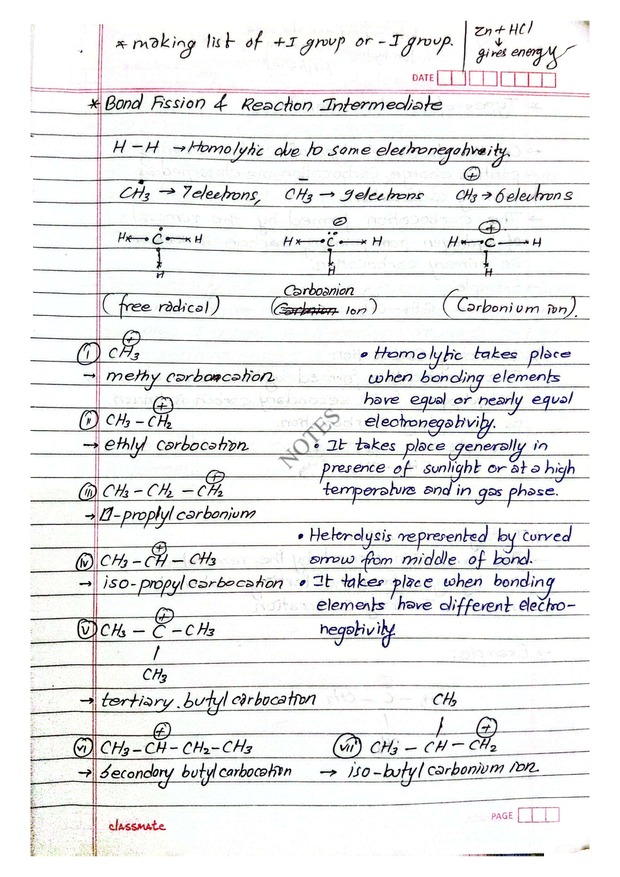 * making list of +I group or -I group.
Zn + HCl
↓
gives energy
DATE
* Bond Fission & Reaction Intermediate
H - H → Homolytic due to same electronegativity.
ĊH3 → 7 electrons, C̄H3 → 9 electrons ⊕CH3 → 6 electrons
H C H H C H H C H
H H H
(free radical) (Carboanion Ion) (Carbonium ion).
(i) ⊕CH3
→ methy carbocation
(ii) CH3 - ⊕CH2
→ ethlyl carbocation
(iii) CH3 - CH2 - ⊕CH2
→ n-proplyl carbonium
(iv) CH3 - ⊕CH - CH3
→ iso-propyl carbocation
(v) CH3 - ⊕C - CH3
CH3
→ tertiary.butyl carbocation
(vi) CH3 - ⊕CH - CH2 - CH3
→ Secondory butyl carbocation
• Homolytic takes place
when bonding elements
have equal or nearly equal
electronegativity.
• It takes place generally in
presence of sunlight or at a high
temperature and in gas phase.
• Heterolysis represented by curved
arrow from middle of bond.
• It takes place when bonding
elements have different electro-
negativity
CH3
(vii) CH3 - CH - ⊕CH2
→ iso-butyl carbonium ion.
NOTES
classmate
PAGE